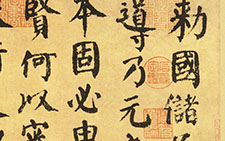 勅國儲
導乃元
本固必由
賢何以審